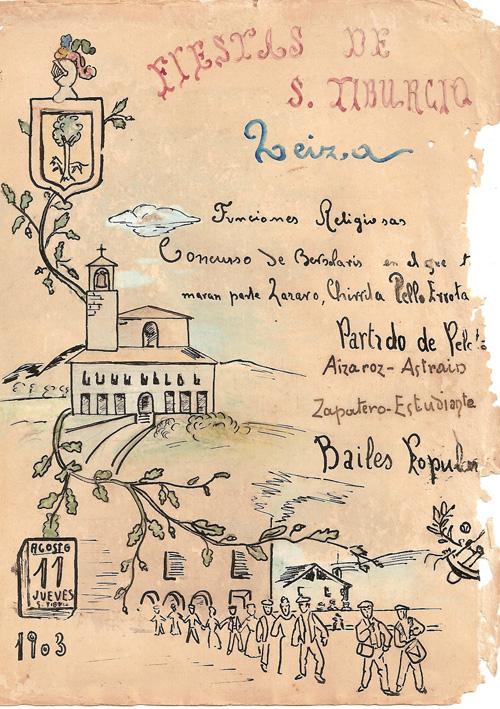 FIESTAS DE
S. TIBURCIO
Leiza
Funciones Religiosas
Concurso de Bersolaris en el que t
maran parte Lazaro, Chirrita Pello Errota
Partido de Pelot
Aizaroz - Astrain
Zapatero - Estudiante
Bailes Popular
AGOSTO
11
JUEVES
1903